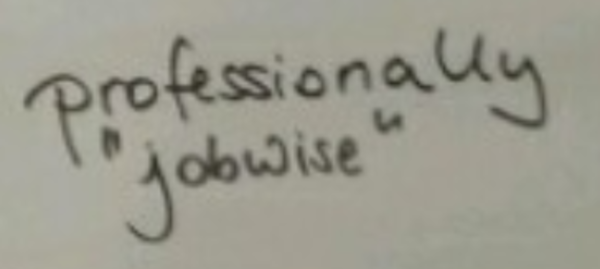 professionally
"jobwise"